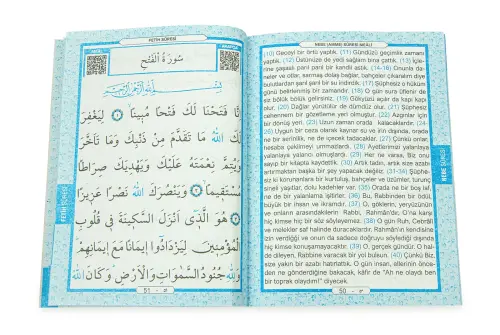 NEBE (AMME) SÛRESİ MEÂLİ
(10) Geceyi bir örtü yaptık. (11) Gündüzü geçimlik zamanı
yaptık. (12) Üstünüze de yedi sağlam bina çattık. (13) İç-
lerine şaşaalı parıl parıl bir kandil astık. (14-16) Onunla da-
neler ve otlar, sarmaş dolaş bağlar, bahçeler çıkaralım diye
bulutlardan şarıl şarıl bir su indirdik. (17) Şüphesiz o hüküm
günü belirlenmiş bir zamandır. (18) O gün sûra üflenir de
siz bölük bölük gelirsiniz. (19) Gökyüzü açılır da kapı kapı
olur. (20) Dağlar yürütülür de dümdüz olur. (21) Şüphesiz
cehennem bir gözetleme yeri olmuştur. (22) Azgınlar için
bir dönüş yeri. (23) Uzun zaman orada kalacaklardır. (24-
26) Uygun bir ceza olarak kaynar su ve irin dışında, orada
ne bir serinlik, ne de içecek tadacaklar. (27) Çünkü onlar,
hesaba çekilmeyi ummazlardı. (28) Âyetlerimizi yalanlaya
yalanlaya yalancı olmuşlardı. (29) Her ne varsa, Biz onu
sayıp bir kitapta kaydettik. (30) Artık tadın, artık size azabı
artırmaktan başka bir şey yapacak değiliz. (31-34) Şüphe-
siz ki korunanlara bir kurtuluş, bahçeler ve üzümler, turunç
sineli yaşıtlar, dolu kadehler var. (35) Orada ne bir boş laf,
ne de bir yalanlama işitirler. (36) Bu, Rabbinden bir ödül,
büyük bir ihsan ve ikramdır. (37) O, göklerin, yeryüzünün
ve onların arasındakilerin Rabbi, Rahmân'dır. O'na karşı
hiç kimse hiç bir söz söylemez. (38) O gün Ruh, Cebrail
ve melekler saf halinde duracaklardır. Rahmân'ın kendisine
izin verdiği ve onun da sadece doğruyu söylediği dışında
hiç kimse konuşmayacaktır. (39) O, gerçek gündür. O hal-
de dileyen, Rabbine varacak bir yol bulsun. (40) Çünkü Biz,
size yakın bir azabı hatırlattık. O gün insan, ellerinin önce-
den ne gönderdiğine bakacak, kâfir de "Ah ne olaydı ben
bir toprak olaydım!" diyecek.
NEBE SÛRESİ
50
FETİH SÛRESİ
سُورَةُ الْفَتْحِ
بِسْمِ اللهِ الرَّحْمٰنِ الرَّحِيمِ
إِنَّا فَتَحْنَا لَكَ فَتْحًا مُبِينًا ١ لِيَغْفِرَ
لَكَ اللهُ مَا تَقَدَّمَ مِنْ ذَنْبِكَ وَمَا تَأَخَّرَ
وَيُتِمَّ نِعْمَتَهُ عَلَيْكَ وَيَهْدِيَكَ صِرَاطًا
مُسْتَقِيمًا ٢ وَيَنْصُرَكَ اللهُ نَصْرًا عَزِيزًا ٣
هُوَ الَّذِي أَنْزَلَ السَّكِينَةَ فِي قُلُوبِ
الْمُؤْمِنِينَ لِيَزْدَادُوا إِيمَانًا مَعَ إِيمَانِهِمْ
وَلِلّٰهِ جُنُودُ السَّمٰوَاتِ وَالْأَرْضِ وَكَانَ اللهُ
FETİH SÛRESİ
51